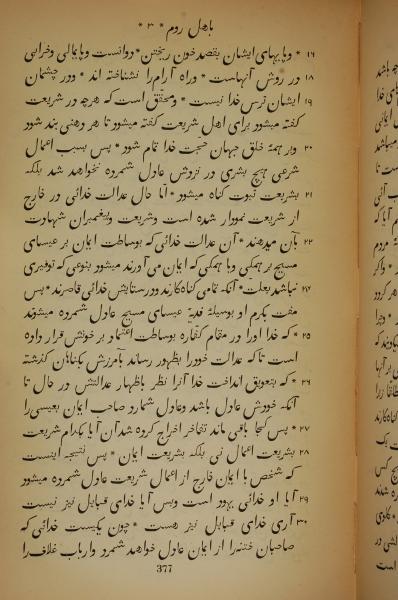 باهل روم * ۳ *
۱۶ * وپایهای ایشان بقصد خون ریختن * دوانست وپایمالی وخرابی
۱۸ در روش آنهاست * وراه آرام را نشناخته اند * ودر چشمان
۱۹ ایشان ترس خدا نیست * ومحقق است که هرچه در شریعت
گفته میشود برای اهل شریعت گفته میشود تا هر دهنی بند شود
۲۰ وبر همهٔ خلق جهان حجت خدا تمام شود * پس بسبب اعمال
شرعی هیچ بشری در نزدش عادل شمرده نخواهد شد بلکه
۲۱ بشریعت ثبوت گناه میشود * اما حال عدالت خدائی در خارج
از شریعت نمودار شده است وشریعت وپیغمبران شهادت
۲۲ بآن میدهند * آن عدالت خدائی که بوساطت ایمان بر عیسای
مسیح بر همکی وبا همکی که ایمان می آورند میشود بنوعی که توفیری
۲۳ نباشد بعلت * آنکه تمامی گناه کارند ودر ستایش خدائی قاصرند * پس
مفت بکرم او بوسیلهٔ فدیهٔ عیسای مسیح عادل شمرده میشوند
۲۵ * که خدا اورا در مقام کفاره بوساطت اعتماد بر خونش قرار داده
است تا که عدالت خودرا بظهور رساند بآمرزش گناهان گذشته
۲۶ * که بتعویق انداخت خدا آنرا نظر باظهار عدالتش در حال تا
آنکه خودش عادل باشد وعادل شمارد صاحب ایمان بعیسی را
۲۷ * پس کجا باقی ماند تفاخر اخراج کرده شد آن آیا بکدام شریعت
۲۸ بشریعت اعمال نی بلکه بشریعت ایمان * پس نتیجه اینست
که شخص با ایمان خارج از اعمال شریعت عادل شمرده میشود
۲۹ آیا او خدائی یهود است وبس آیا خدای قبایل نیز نیست
۳۰ آری خدای قبایل نیز هست * چون یکیست خدائی که
صاحبان ختنه را از ایمان عادل خواهد شمرد وارباب غلاف را
377